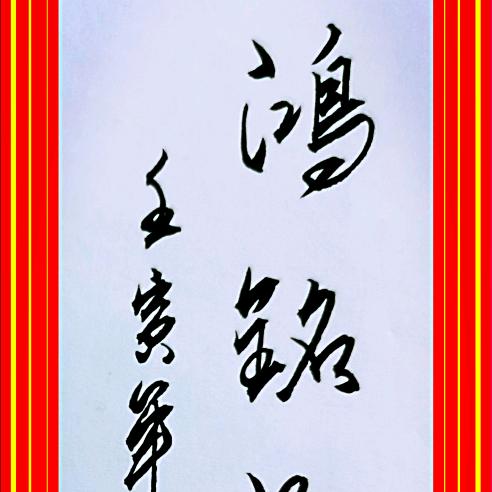 鴻銘
壬寅年